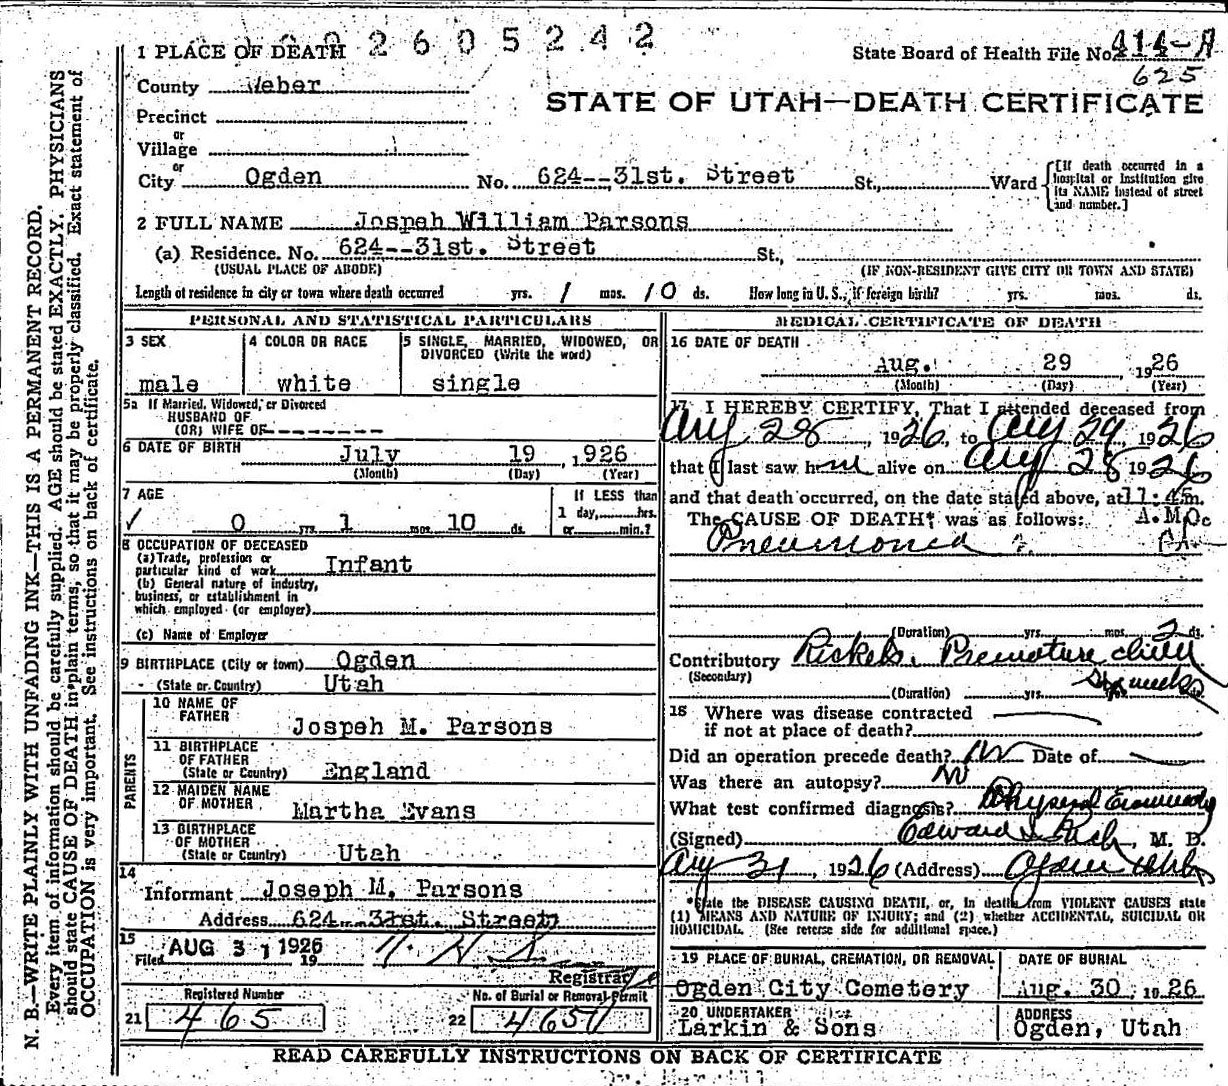 0 0 2 6 0 5 2 4 2
1 PLACE OF DEATH
State Board of Health File No. 414-A
625
County Weber
STATE OF UTAH—DEATH CERTIFICATE
Precinct
or
Village
or
City Ogden No. 624--31st. Street St., Ward
[If death occurred in a hospital or institution give its NAME instead of street and number.]
2 FULL NAME Jospeh William Parsons
(a) Residence. No. 624--31st. Street St.,
(USUAL PLACE OF ABODE) (IF NON-RESIDENT GIVE CITY OR TOWN AND STATE)
Length of residence in city or town where death occurred yrs. 1 mos. 10 ds. How long in U. S., if foreign birth? yrs. mos. ds.
PERSONAL AND STATISTICAL PARTICULARS
3 SEX
male
4 COLOR OR RACE
white
5 SINGLE, MARRIED, WIDOWED, OR
DIVORCED (Write the word)
single
5a If Married, Widowed, or Divorced
HUSBAND OF
(OR) WIFE OF--------
6 DATE OF BIRTH July 19, 1926
(Month) (Day) (Year)
7 AGE
✓ 0 yrs. 1 mos. 10 ds.
If LESS than
1 day, hrs.
or min.?
8 OCCUPATION OF DECEASED
(a) Trade, profession or
particular kind of work Infant
(b) General nature of industry,
business, or establishment in
which employed (or employer)
(c) Name of Employer
9 BIRTHPLACE (City or town) Ogden
(State or Country) Utah
PARENTS
10 NAME OF
FATHER Jospeh M. Parsons
11 BIRTHPLACE
OF FATHER
(State or Country) England
12 MAIDEN NAME
OF MOTHER Martha Evans
13 BIRTHPLACE
OF MOTHER
(State or Country) Utah
14
Informant Joseph M. Parsons
Address 624--31st. Street
15
Filed AUG 31 1926 19
Registrar
Registered Number
21 465
No. of Burial or Removal Permit
22 4651
MEDICAL CERTIFICATE OF DEATH
16 DATE OF DEATH
Aug. 29, 1926
(Month) (Day) (Year)
17 I HEREBY CERTIFY, That I attended deceased from
Aug 28, 1926, to Aug 29 1926
that I last saw him alive on Aug 28 1926
and that death occurred, on the date stated above, at 11:45m.
The CAUSE OF DEATH* was as follows: A.M.
Pneumonia
(Duration) yrs. mos. 2 ds.
Contributory Rickets. Premature child
(Secondary)
six weeks
(Duration) yrs.
18 Where was disease contracted
if not at place of death?
Did an operation precede death? no Date of
Was there an autopsy? no
What test confirmed diagnosis? Physical
(Signed) Edward, M. D.
Aug 31, 1926 (Address) Ogden Utah
*State the DISEASE CAUSING DEATH, or, in deaths from VIOLENT CAUSES state
(1) MEANS AND NATURE OF INJURY; and (2) whether ACCIDENTAL, SUICIDAL OR
HOMICIDAL. (See reverse side for additional space.)
19 PLACE OF BURIAL, CREMATION, OR REMOVAL
Ogden City Cemetery
DATE OF BURIAL
Aug. 30, 1926
20 UNDERTAKER
Larkin & Sons
ADDRESS
Ogden, Utah
READ CAREFULLY INSTRUCTIONS ON BACK OF CERTIFICATE
N. B.—WRITE PLAINLY WITH UNFADING INK—THIS IS A PERMANENT RECORD.
Every item of information should be carefully supplied. AGE should be stated EXACTLY. PHYSICIANS
should state CAUSE OF DEATH in plain terms, so that it may be properly classified. Exact statement of
OCCUPATION is very important. See instructions on back of certificate.